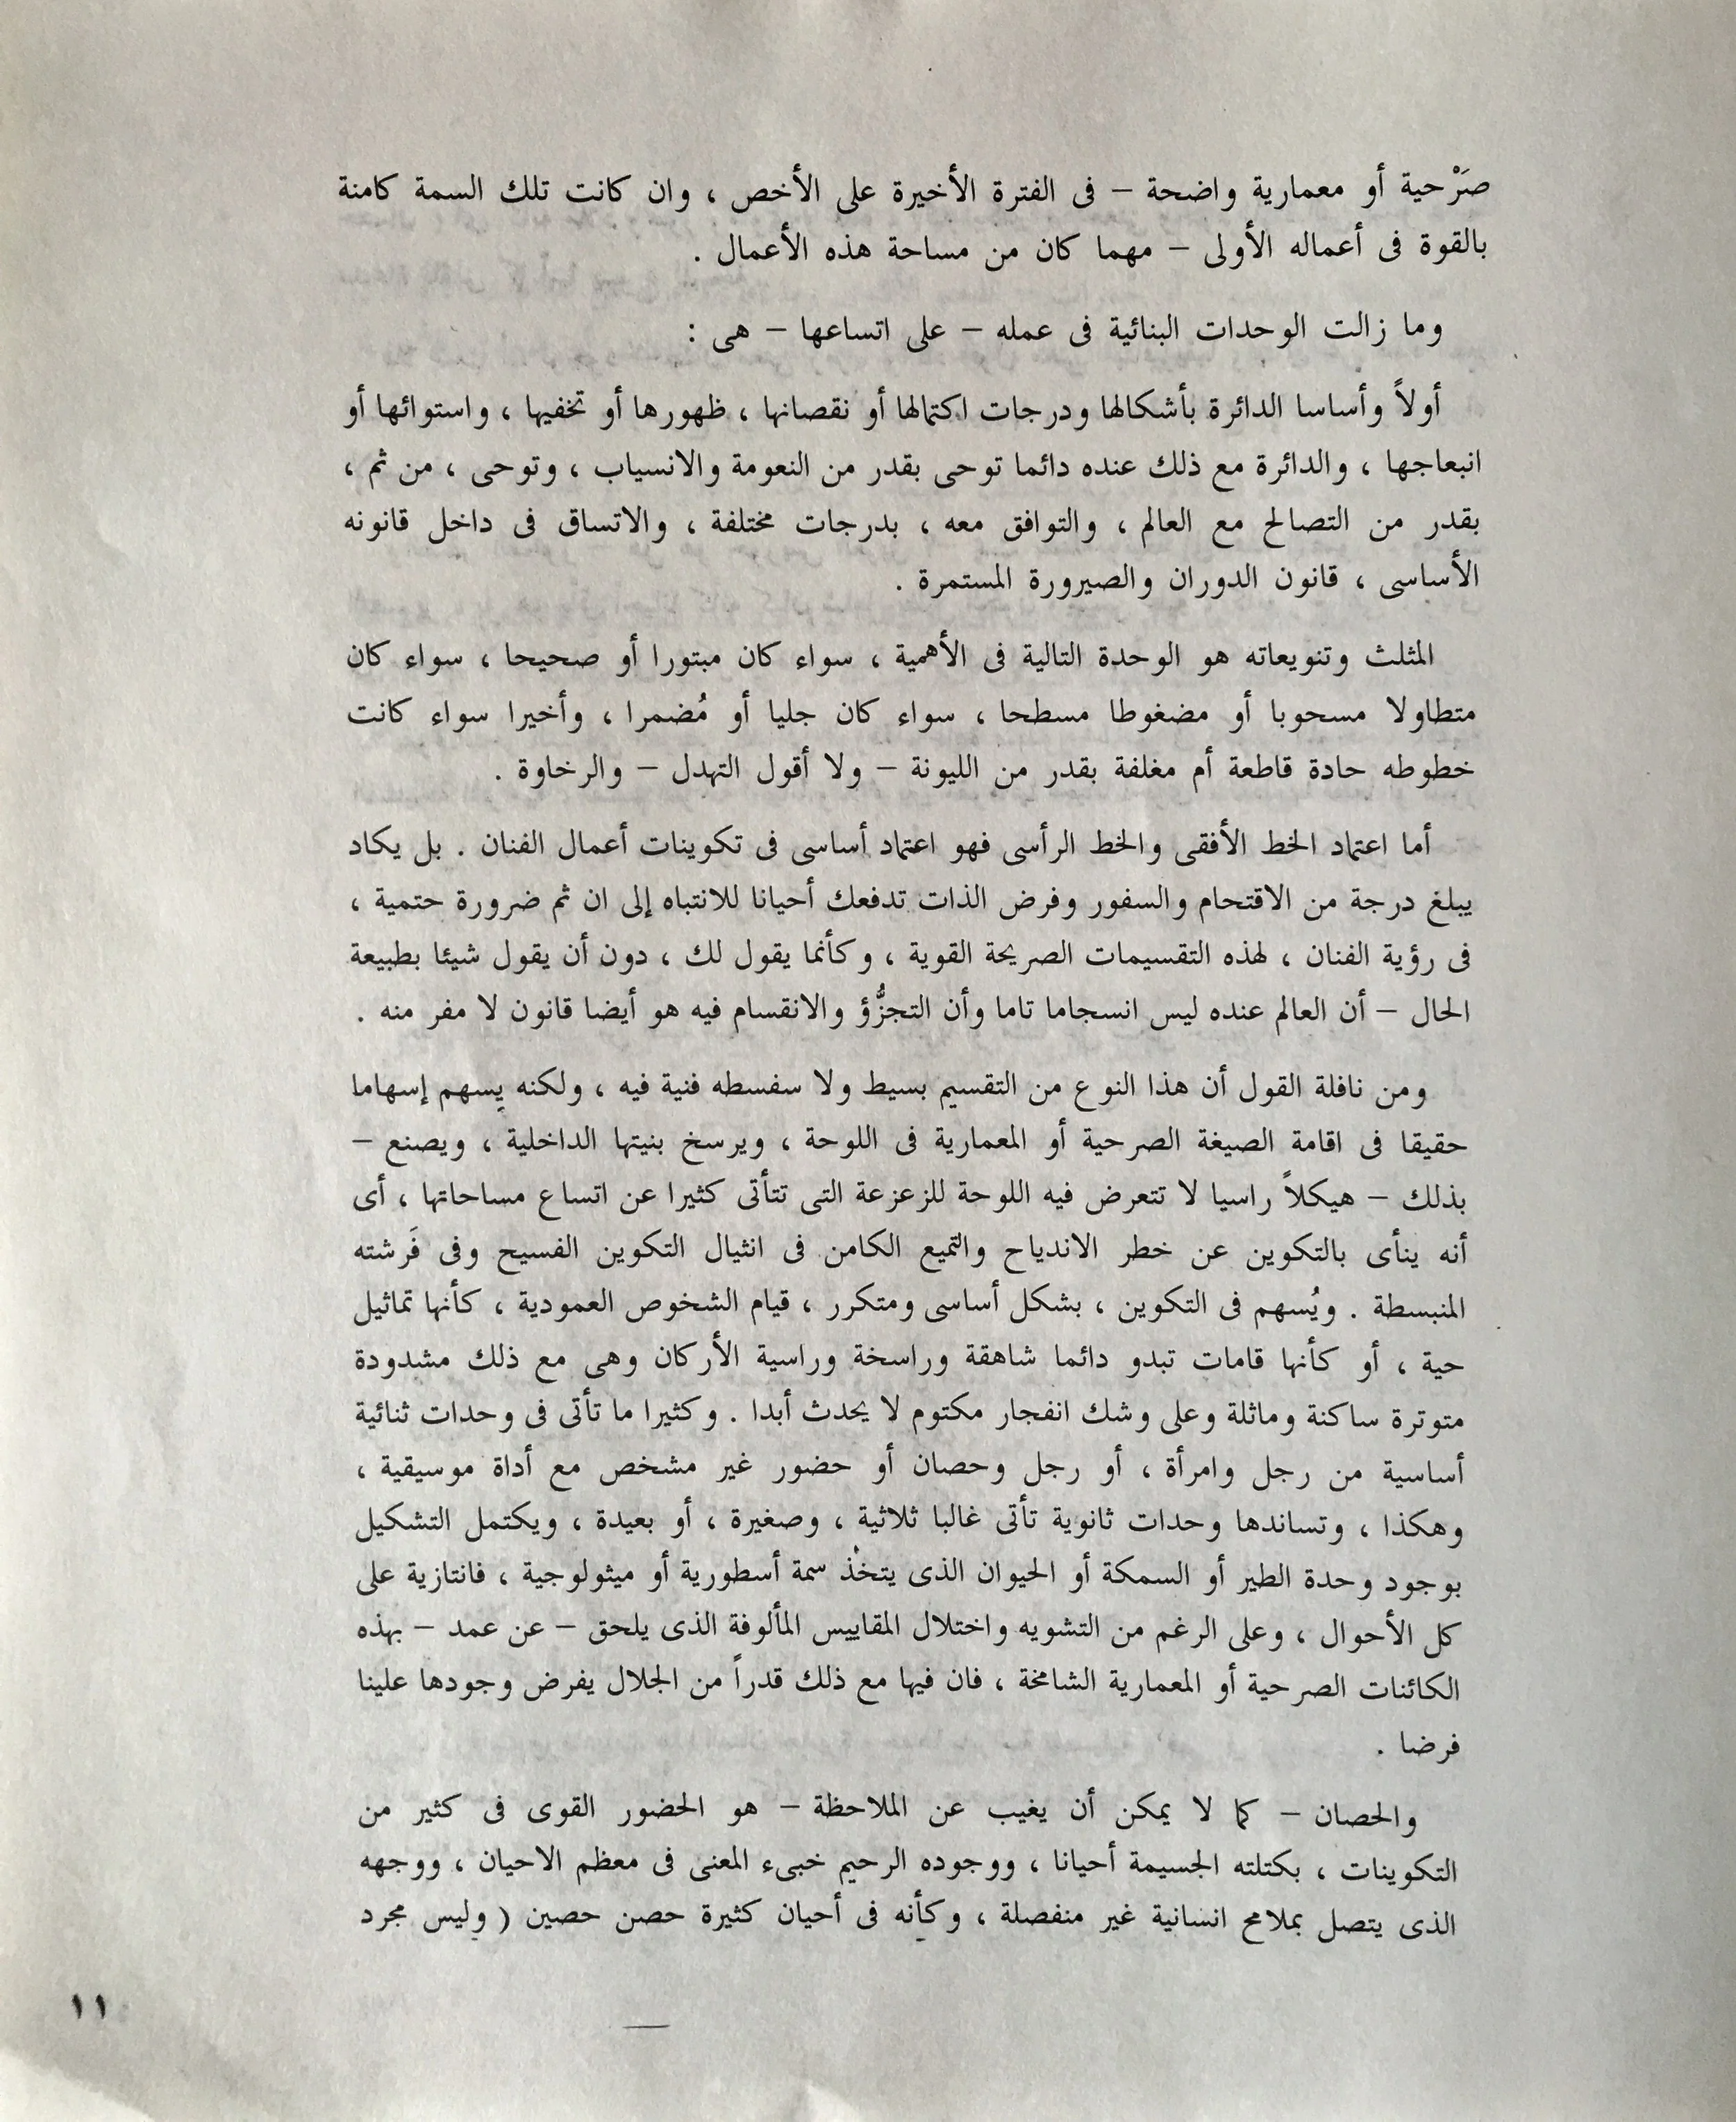 صَرْحية أو معمارية واضحة – فى الفترة الأخيرة على الأخص ، وان كانت تلك السمة كامنة
بالقوة فى أعماله الأولى – مهما كان من مساحة هذه الأعمال .
وما زالت الوحدات البنائية فى عمله – على اتساعها – هى :
أولاً وأساسا الدائرة بأشكالها ودرجات اكتمالها أو نقصانها ، ظهورها أو تخفيها ، واستوائها أو
انبعاجها ، والدائرة مع ذلك عنده دائما توحى بقدر من النعومة والانسياب ، وتوحى ، من ثم ،
بقدر من التصالح مع العالم ، والتوافق معه ، بدرجات مختلفة ، والاتساق فى داخل قانونه
الأساسى ، قانون الدوران والصيرورة المستمرة .
المثلث وتنويعاته هو الوحدة التالية فى الأهمية ، سواء كان مبتورا أو صحيحا ، سواء كان
متطاولا مسحوبا أو مضغوطا مسطحا ، سواء كان جليا أو مُضمرا ، وأخيرا سواء كانت
خطوطه حادة قاطعة أم مغلفة بقدر من الليونة – ولا أقول التهدل – والرخاوة .
أما اعتماد الخط الأفقى والخط الرأسى فهو اعتماد أساسى فى تكوينات أعمال الفنان . بل يكاد
يبلغ درجة من الاقتحام والسفور وفرض الذات تدفعك أحيانا للانتباه إلى ان ثم ضرورة حتمية ،
فى رؤية الفنان ، لهذه التقسيمات الصريحة القوية ، وكأنما يقول لك ، دون أن يقول شيئا بطبيعة
الحال – أن العالم عنده ليس انسجاما تاما وأن التجزُّؤ والانقسام فيه هو أيضا قانون لا مفر منه .
ومن نافلة القول أن هذا النوع من التقسيم بسيط ولا سفسطه فنية فيه ، ولكنه يسهم إسهاما
حقيقا فى اقامة الصيغة الصرحية أو المعمارية فى اللوحة ، ويرسخ بنيتها الداخلية ، ويصنع –
بذلك – هيكلاً راسيا لا تتعرض فيه اللوحة للزعزعة التى تتأتى كثيرا عن اتساع مساحاتها ، أى
أنه ينأى بالتكوين عن خطر الاندياح والتميع الكامن فى انثيال التكوين الفسيح وفى فَرشته
المنبسطة . ويُسهم فى التكوين ، بشكل أساسى ومتكرر ، قيام الشخوص العمودية ، كأنها تماثيل
حية ، أو كأنها قامات تبدو دائما شاهقة وراسخة وراسية الأركان وهى مع ذلك مشدودة
متوترة ساكنة وماثلة وعلى وشك انفجار مكتوم لا يحدث أبدا . وكثيرا ما تأتى فى وحدات ثنائية
أساسية من رجل وامرأة ، أو رجل وحصان أو حضور غير مشخص مع أداة موسيقية ،
وهكذا ، وتساندها وحدات ثانوية تأتى غالبا ثلاثية ، وصغيرة ، أو بعيدة ، ويكتمل التشكيل
بوجود وحدة الطير أو السمكة أو الحيوان الذى يتخذ سمة أسطورية أو ميثولوجية ، فانتازية على
كل الأحوال ، وعلى الرغم من التشويه واختلال المقاييس المألوفة الذى يلحق – عن عمد – بهذه
الكائنات الصرحية أو المعمارية الشامخة ، فان فيها مع ذلك قدراً من الجلال يفرض وجودها علينا
فرضا .
والحصان – كما لا يمكن أن يغيب عن الملاحظة – هو الحضور القوى فى كثير من
التكوينات ، بكتلته الجسيمة أحيانا ، ووجوده الرحيم خبىء المعنى فى معظم الاحيان ، ووجهه
الذى يتصل بملامح انسانية غير منفصلة ، وكأنه فى أحيان كثيرة حصن حصين ( وليس مجرد
١١